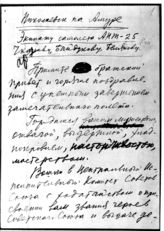 Николаевск на Амуре
Экипажу самолета АНТ-25
Чкалову, Байдукову, Белякову.
Примите братский
привет и горячие поздравле-
ния с успешным завершением
замечательного полета.
Гордимся вашим мужеством,
отвагой, выдержкой, хлад-
нокровием, настойчивостью,
мастерством.
Вошли в Центральный Ис-
полнительный Комитет Совета
Союза с ходатайством о при-
своении вам звания героев
Советского Союза и выдаче де-